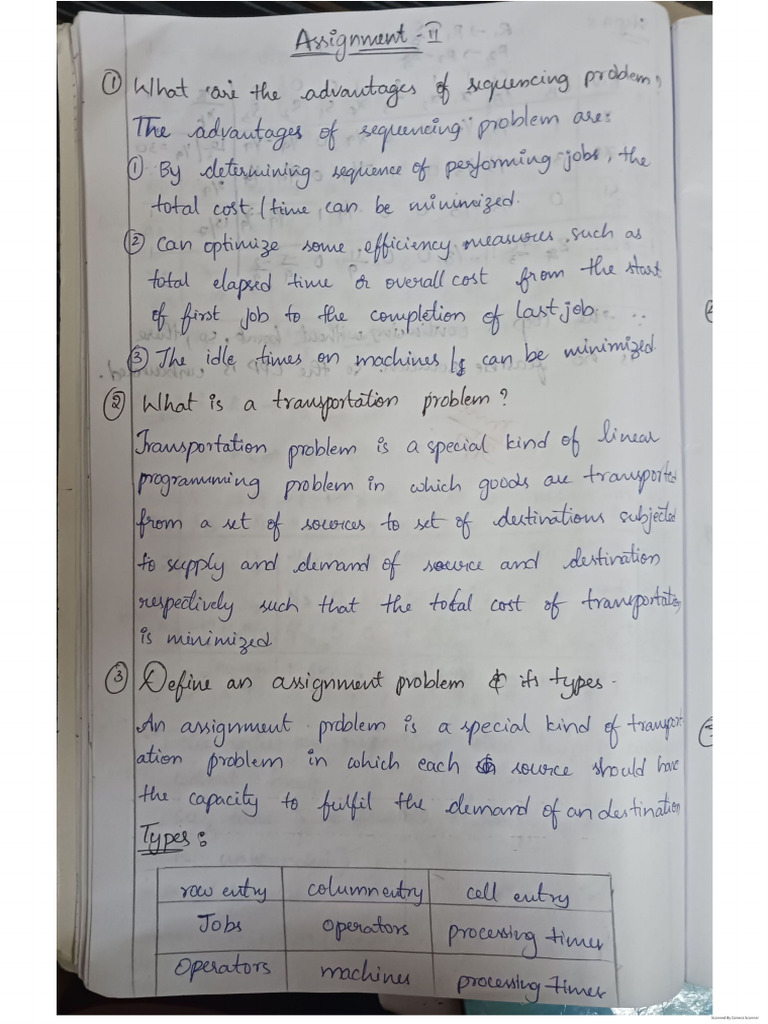 Assignment - II
① What are the advantages of sequencing problem?
The advantages of sequencing problem are:
① By determining sequence of performing jobs, the
total cost / time can be minimized.
② Can optimize some efficiency measures such as
total elapsed time or overall cost from the start
of first job to the completion of last job.
③ The idle times on machines can be minimized
② What is a transportation problem?
Transportation problem is a special kind of linear
programming problem in which goods are transported
from a set of sources to set of destinations subjected
to supply and demand of source and destination
respectively such that the total cost of transportation
is minimized
③ Define an assignment problem & its types.
An assignment problem is a special kind of transport
ation problem in which each source should have
the capacity to fulfil the demand of an destination
Types:
row entry column entry cell entry
Jobs operators processing times
Operators machines processing times
Scanned By Camera Scanner